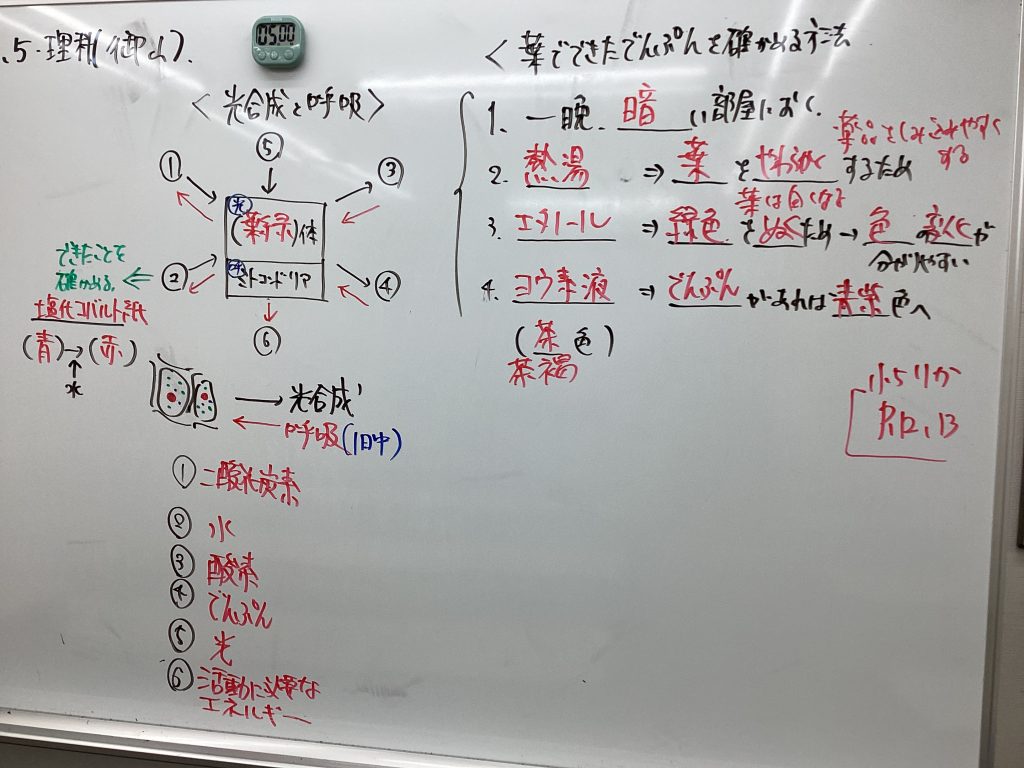 .5・理科
05:00
＜光合成と呼吸＞
⑤
①
③
光
(葉緑)体
ミトコンドリア
②
④
⑥
できたことを
確かめる。
塩化コバルト紙
(青)→(赤)
水
→光合成
←呼吸(1日中)
①二酸化炭素
②水
③酸素
④でんぷん
⑤光
⑥活動に必要な
エネルギー
＜葉でできたでんぷんを確かめる方法
1. 一晩、暗い部屋におく。
薬品をしみこみやすく
する
2. 熱湯 ⇒ 葉をやわらかくするため
葉は白くなる
3. エタノール ⇒ 緑色をぬくため→色の変化が
分かりやすい
4. ヨウ素液 ⇒ でんぷんがあれば青紫色へ
(茶色)
茶褐
小5りか
P.12、13